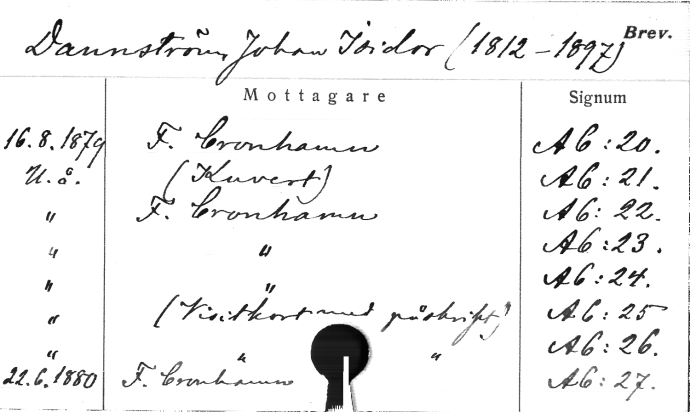 Dannström, Johan Isidor (1812–1897) Brev.
Mottagare Signum
16.8.1879 F. Cronhamn A6:20.
U.å. (Kuvert) A6:21.
" F. Cronhamn A6:22.
" " A6:23.
" " A6:24.
" (Visitkort med påskrift) A6:25
" " " A6:26.
22.6.1880 F. Cronhamn A6:27.